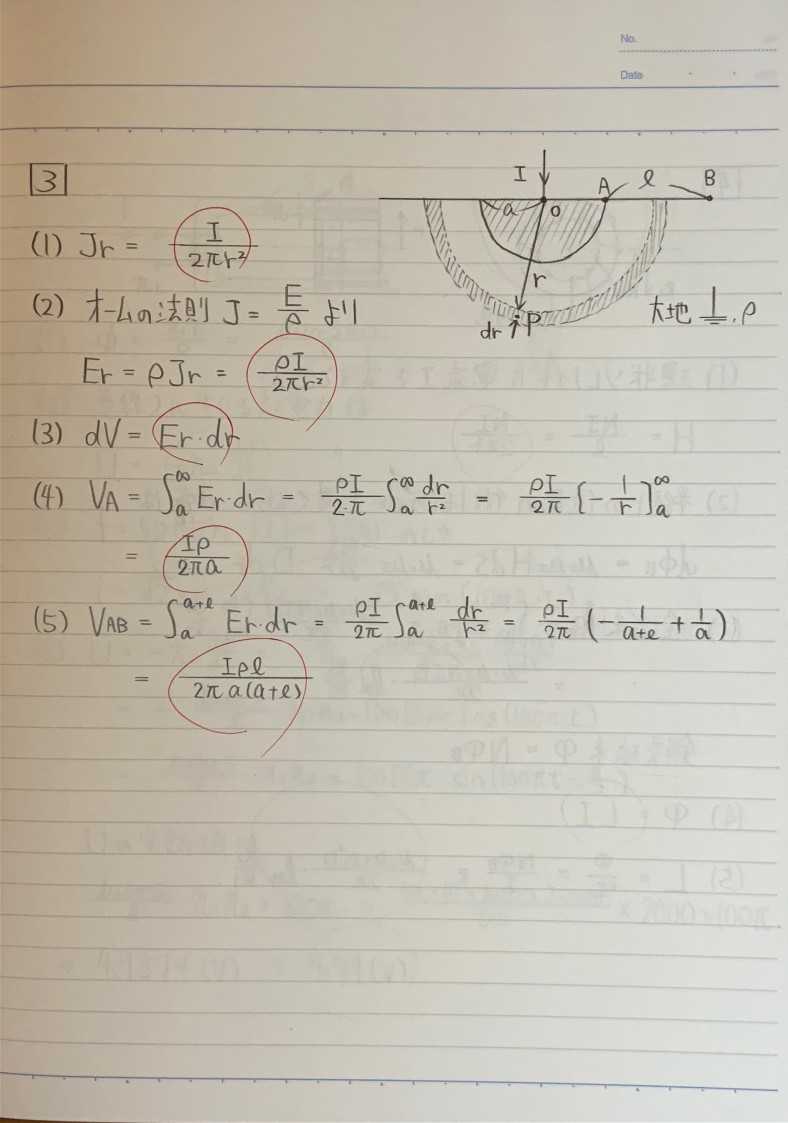 No.
Date
3
I
a O A l B
r
dr P
大地 ⏚, ρ
(1) Jr = I/2πr²
(2) オームの法則 J = E/ρ より
Er = ρJr = ρI/2πr²
(3) dV = Er・dr
(4) VA = ∫ₐ^∞ Er・dr = ρI/2・π ∫ₐ^∞ dr/r² = ρI/2π [-1/r]ₐ^∞
= Iρ/2πa
(5) VAB = ∫ₐ^(a+l) Er・dr = ρI/2π ∫ₐ^(a+l) dr/r² = ρI/2π (-1/(a+l) + 1/a)
= Iρl/2πa(a+l)